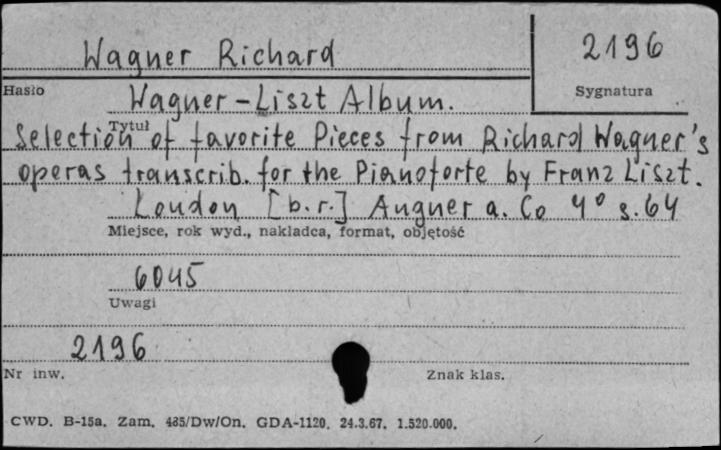 Wagner Richard
2196
Hasło
Sygnatura
Wagner-Liszt Album.
Tytuł
Selection of favorite Pieces from Richard Wagner's
operas transcrib. for the Pianoforte by Franz Liszt.
London [b.r.] Augner a. Co 4° s. 64
Miejsce, rok wyd., nakładca, format, objętość
6045
Uwagi
2196
Nr inw.
Znak klas.
CWD. B-15a. Zam. 485/Dw/On. GDA-1120. 24.3.67. 1.520.000.